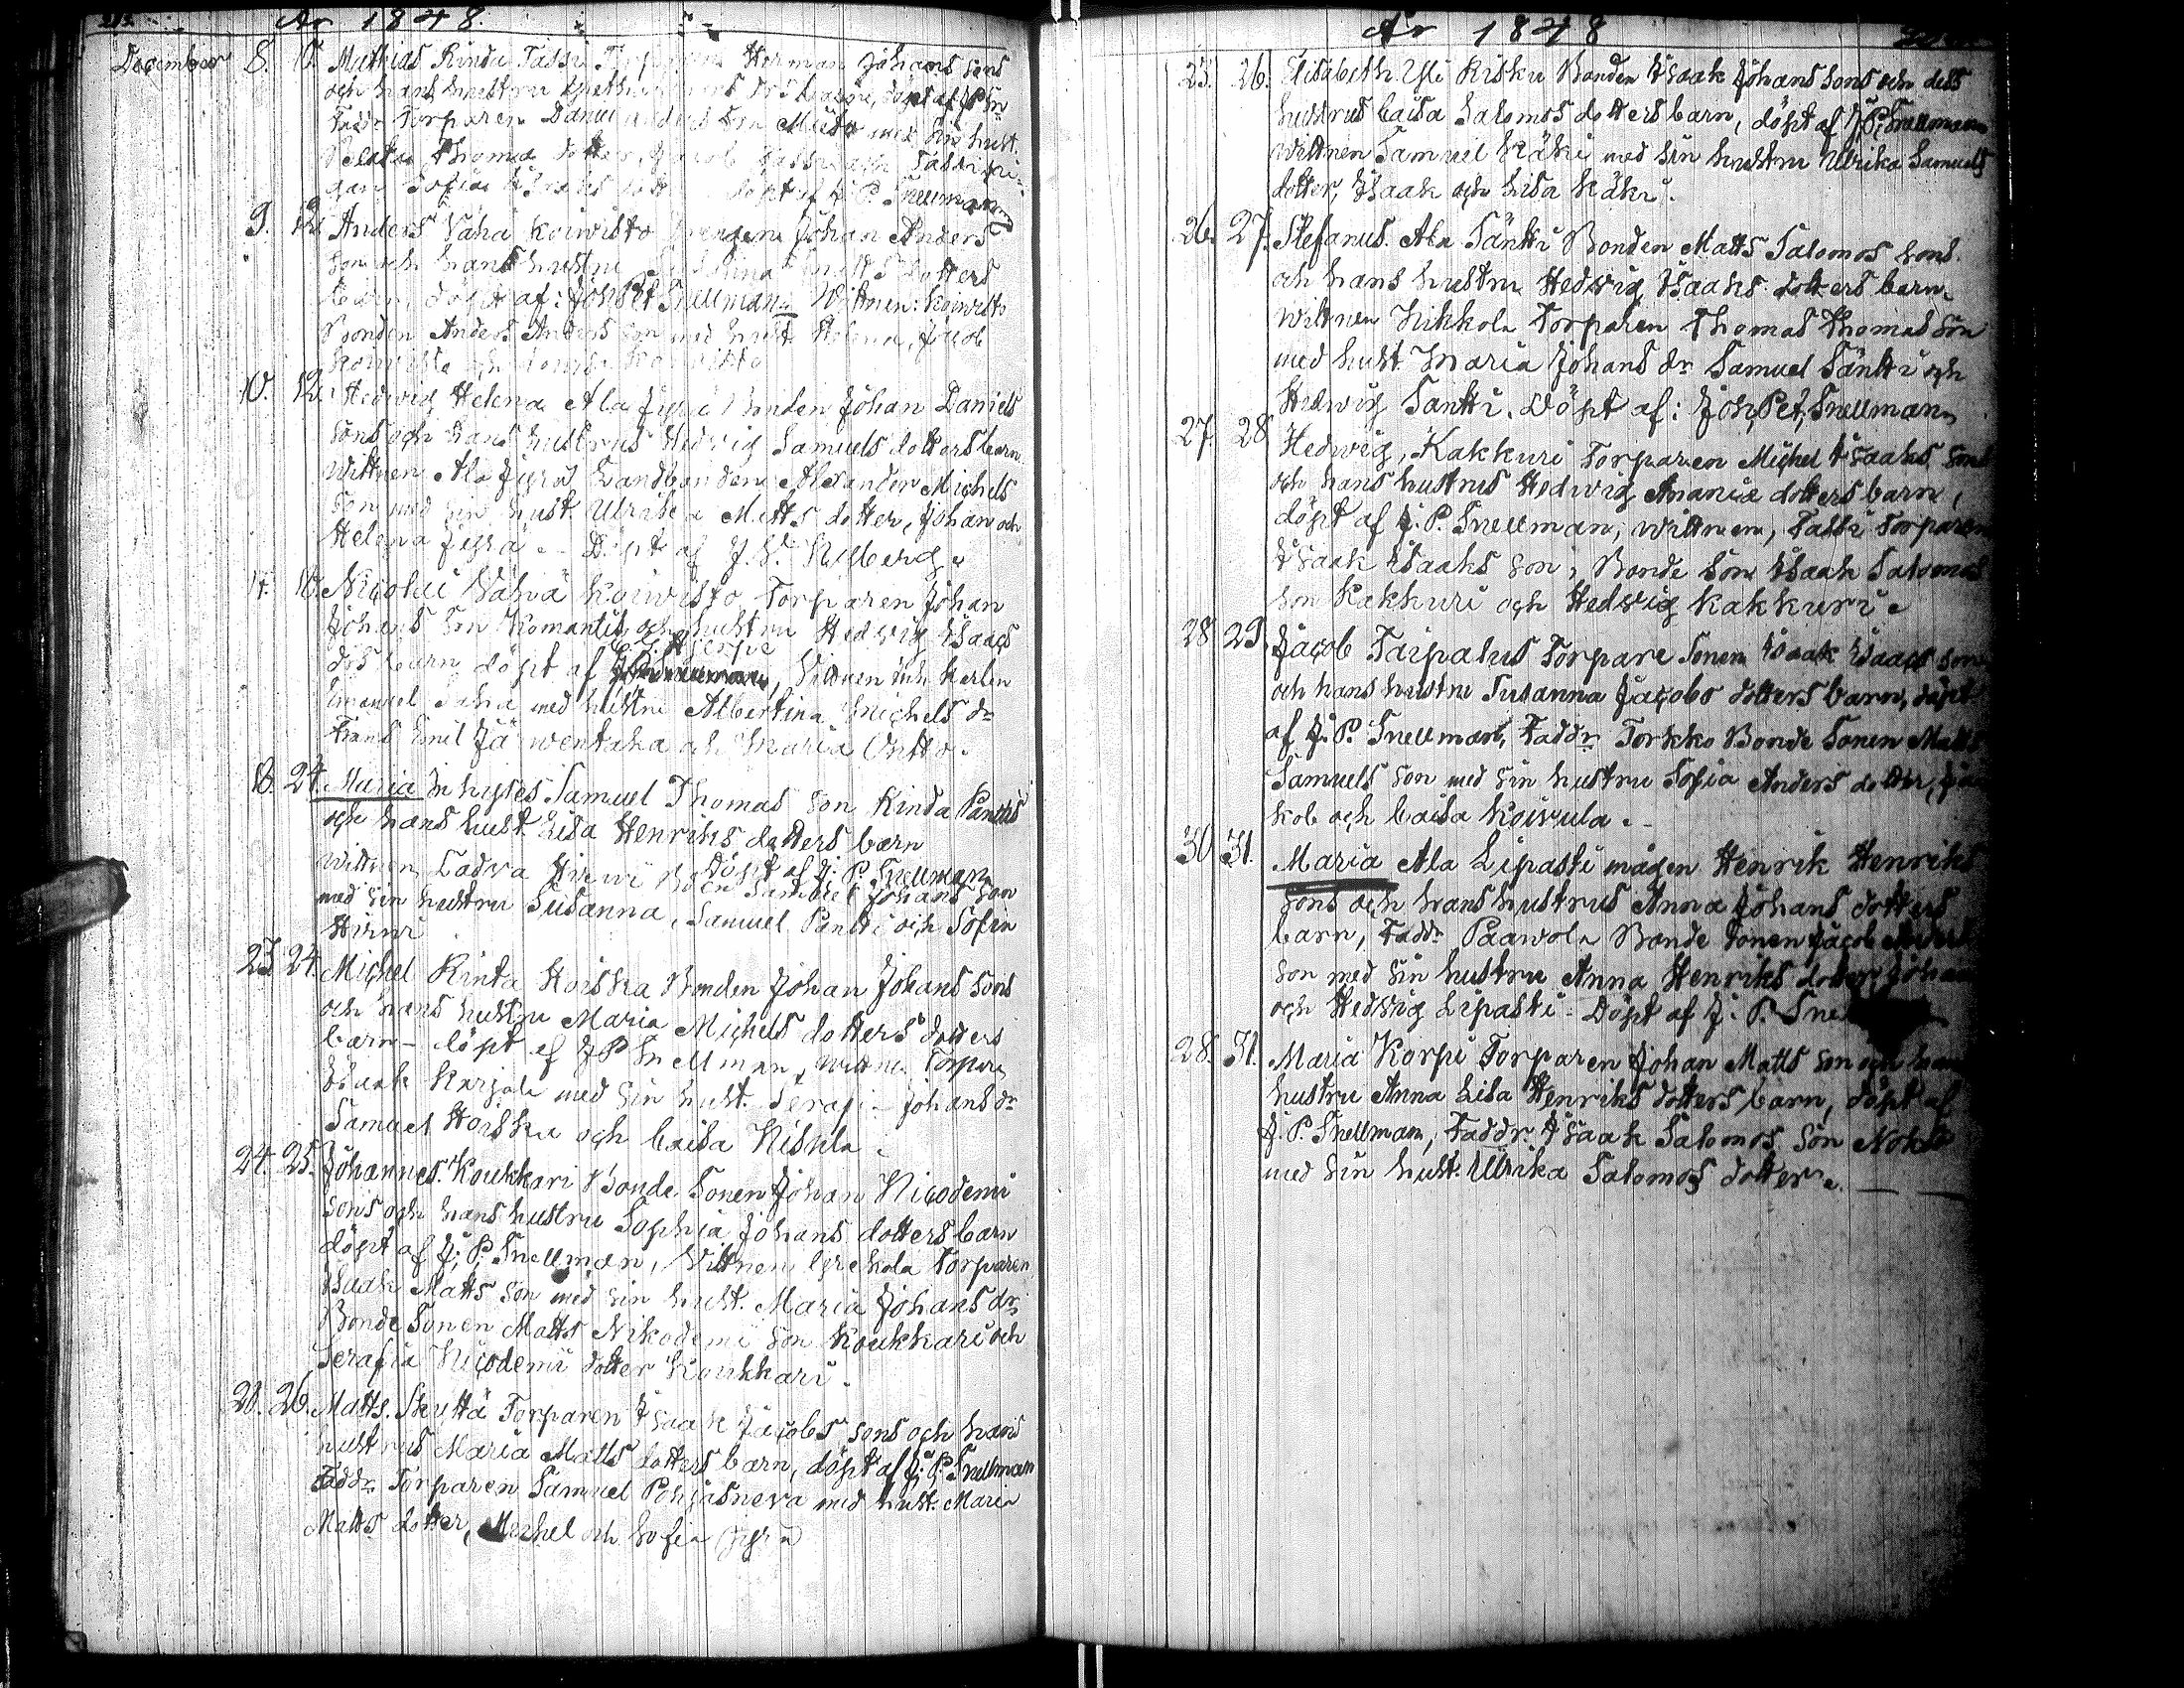 År 1848.
December 8. Mathias Rinda Torparen Herman Johans sons
och hans hustru döpt af
Fadd Torparen Daniel Anders son med sin hust.
Thomæ dotter, Jacob Tassi
Sofia döpt af J. P. Snellman
9. 12. Anders Vähä Koivisto Johan Anders
son och hans hustru Matts dotters
barn, döpt af: Joh Pet Snellman. Wittnen: Koivisto
Bonden Anders Anders son med hust Helena, Jacob
Koivisto och Koivisto
10. 12. Hedvig Helena Ala Jyrä Bonden Johan Daniels
sons och hans hustrus Hedvig Samuels dotters barn
Wittnen Ala Jyrä Landbonden Alexander Michels
son med sin hust. Ulrika Matts dotter, Johan och
Helena Jyrä. Döpt af J.
Nicolai Vähä Koivisto Torparen Johan
Johans son och hustru Hedvig Isaacs
drs barn döpt af
Emanuel med hustru Albertina Michels dr
Frans Emil Järwentaka och Maria Ontto.
18. 24. Maria Inhyses Samuel Thomas son Rinda Panttis
och hans hust. Lisa Henriks dotters barn
Döpt af J. P. Snellman
Wittnen Ladva Hirvi Samuel Johans son
med sin hustru Susanna, Samuel Pantti och Sofia
Hirvi
23. 24. Michel Rinta Hoiska Bonden Johan Johans sons
och hans hustru Maria Michels dotters dotters
barn - döpt af J P Snellman, Wittnen Torparen
Isaak Karjala med sin hust. Serafi - Johans dr
Samuel Hoiska och Caisa
24. 25. Johannes. Koukkari Bonde Sonen Johan Nicodemi
sons och hans hustru Sophia Johans dotters barn
döpt af J. P. Snellman, Wittnen Torparen
Isaak Matts son med sin hust. Maria Johans dr,
Bonde Sonen Matts Nikodemi son Koukkari och
Serafia Nicodemi dotter Koukkari.
26. Matts. Skyttä Torparen Isaak Jacobs sons och hans
hustrus Maria Matts dotters barn, döpt af J. P. Snellman
Faddr. Torparen Samuel Pohjasneva med hust. Maria
Matts dotter, Michel och Sofia Jyrä
År 1848
25. 26. Elisabeth. Yli Risku Bonden Isaak Johans sons och dess
hustrus Caisa Salomos dotters barn, döpt af J. P. Snellman
Wittnen Samuel Käki med sin hustru Ulrika Samuels
dotter, Isaak och Lisa Käki.
26. 27. Stefanus. Ala Säntti Bonden Matts Salomos sons
och hans hustru Hedvig Isaaks dotters barn
Wittnen Nikkola Torparen Thomas Thomas son
med hust. Maria Johans dr Samuel Säntti och
Hedvig Santti. Döpt af: Joh, Pet, Snellman
27. 28 Hedwig, Kakkuri Torparen Michel Isaaks sons
och hans hustrus Hedwig Ananiæ dotters barn,
döpt af J. P. Snellman, Wittnen, Tassi Torparen
Isaak Isaaks son, Bonde son Isaak Salomos
son Kakkuri och Hedvig Kakkuri.
28 29. Jacob Taipalus Torpare Sonen Isaak Isaacs sons
och hans hustru Susanna Jacobs dotters barn, döpt
af J. P. Snellman, Faddr Torkko Bonde Sonen Matts
Samuels son med sin hustru Sofia Anders dotter, Ja
kob och Caisa Koivula.
30 31. Maria Ala Lipasti mågen Henrik Henriks
sons och hans hustrus Anna Johans dotters
barn, Faddr Paawola Bonde Sonen Jacob
son med sin hustru Anna Henriks dotter, Johan
och Hedvig Lipasti - Döpt af J. P. Snel
28. 31. Maria Korpi Torparen Johan Matts son och hans
hustru Anna Lisa Henriks dotters barn, döpt af
J. P. Snellman, Faddr. Isaak Salomos son
med sin hust. Ulrika Salomos dotter.